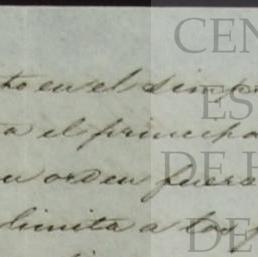 to en el simp
a el principa
u orden fuera
limita a los p
CEN
ES
DE H
DE